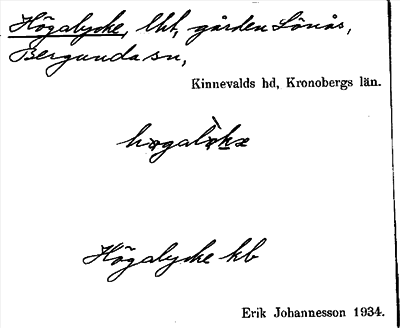 Högalycke, lht, gården Lönås,
Bergunda sn,
Kinnevalds hd, Kronobergs län.
Högalycke kb
Erik Johannesson 1934.